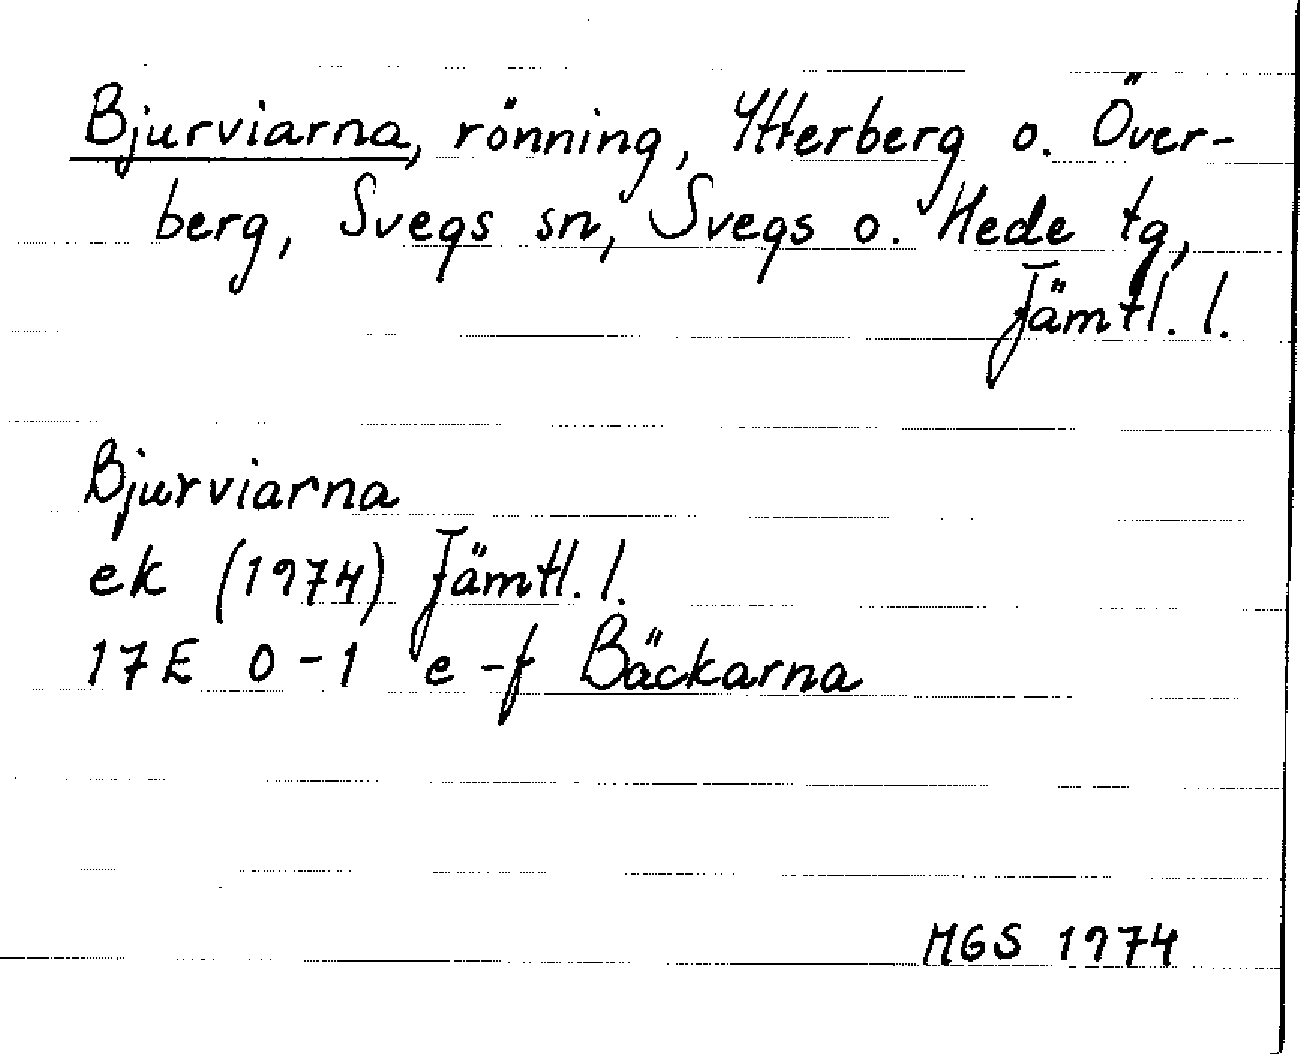 Bjurviarna, rönning, Ytterberg o. Över-
berg, Svegs sn, Svegs o. Hede tg,
Jämtl. l.
Bjurviarna
ek (1974) Jämtl. l.
17E 0-1 e-f Bäckarna
MGS 1974